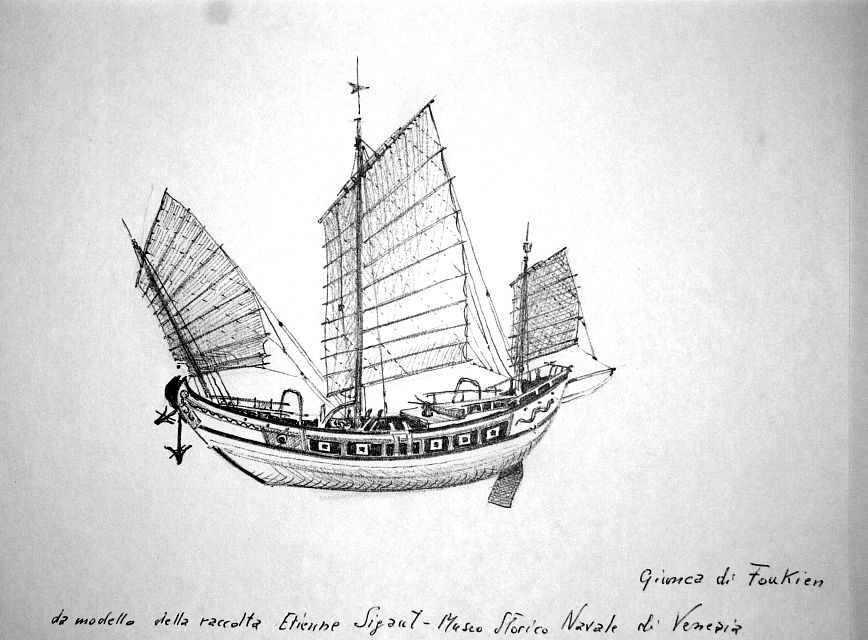 Giunca di Foukien
da modello della raccolta Etienne Sigaut - Museo Storico Navale di Venezia